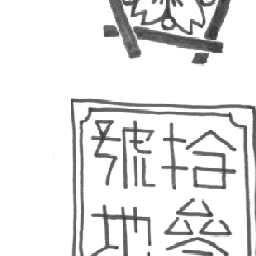 拾參
號地